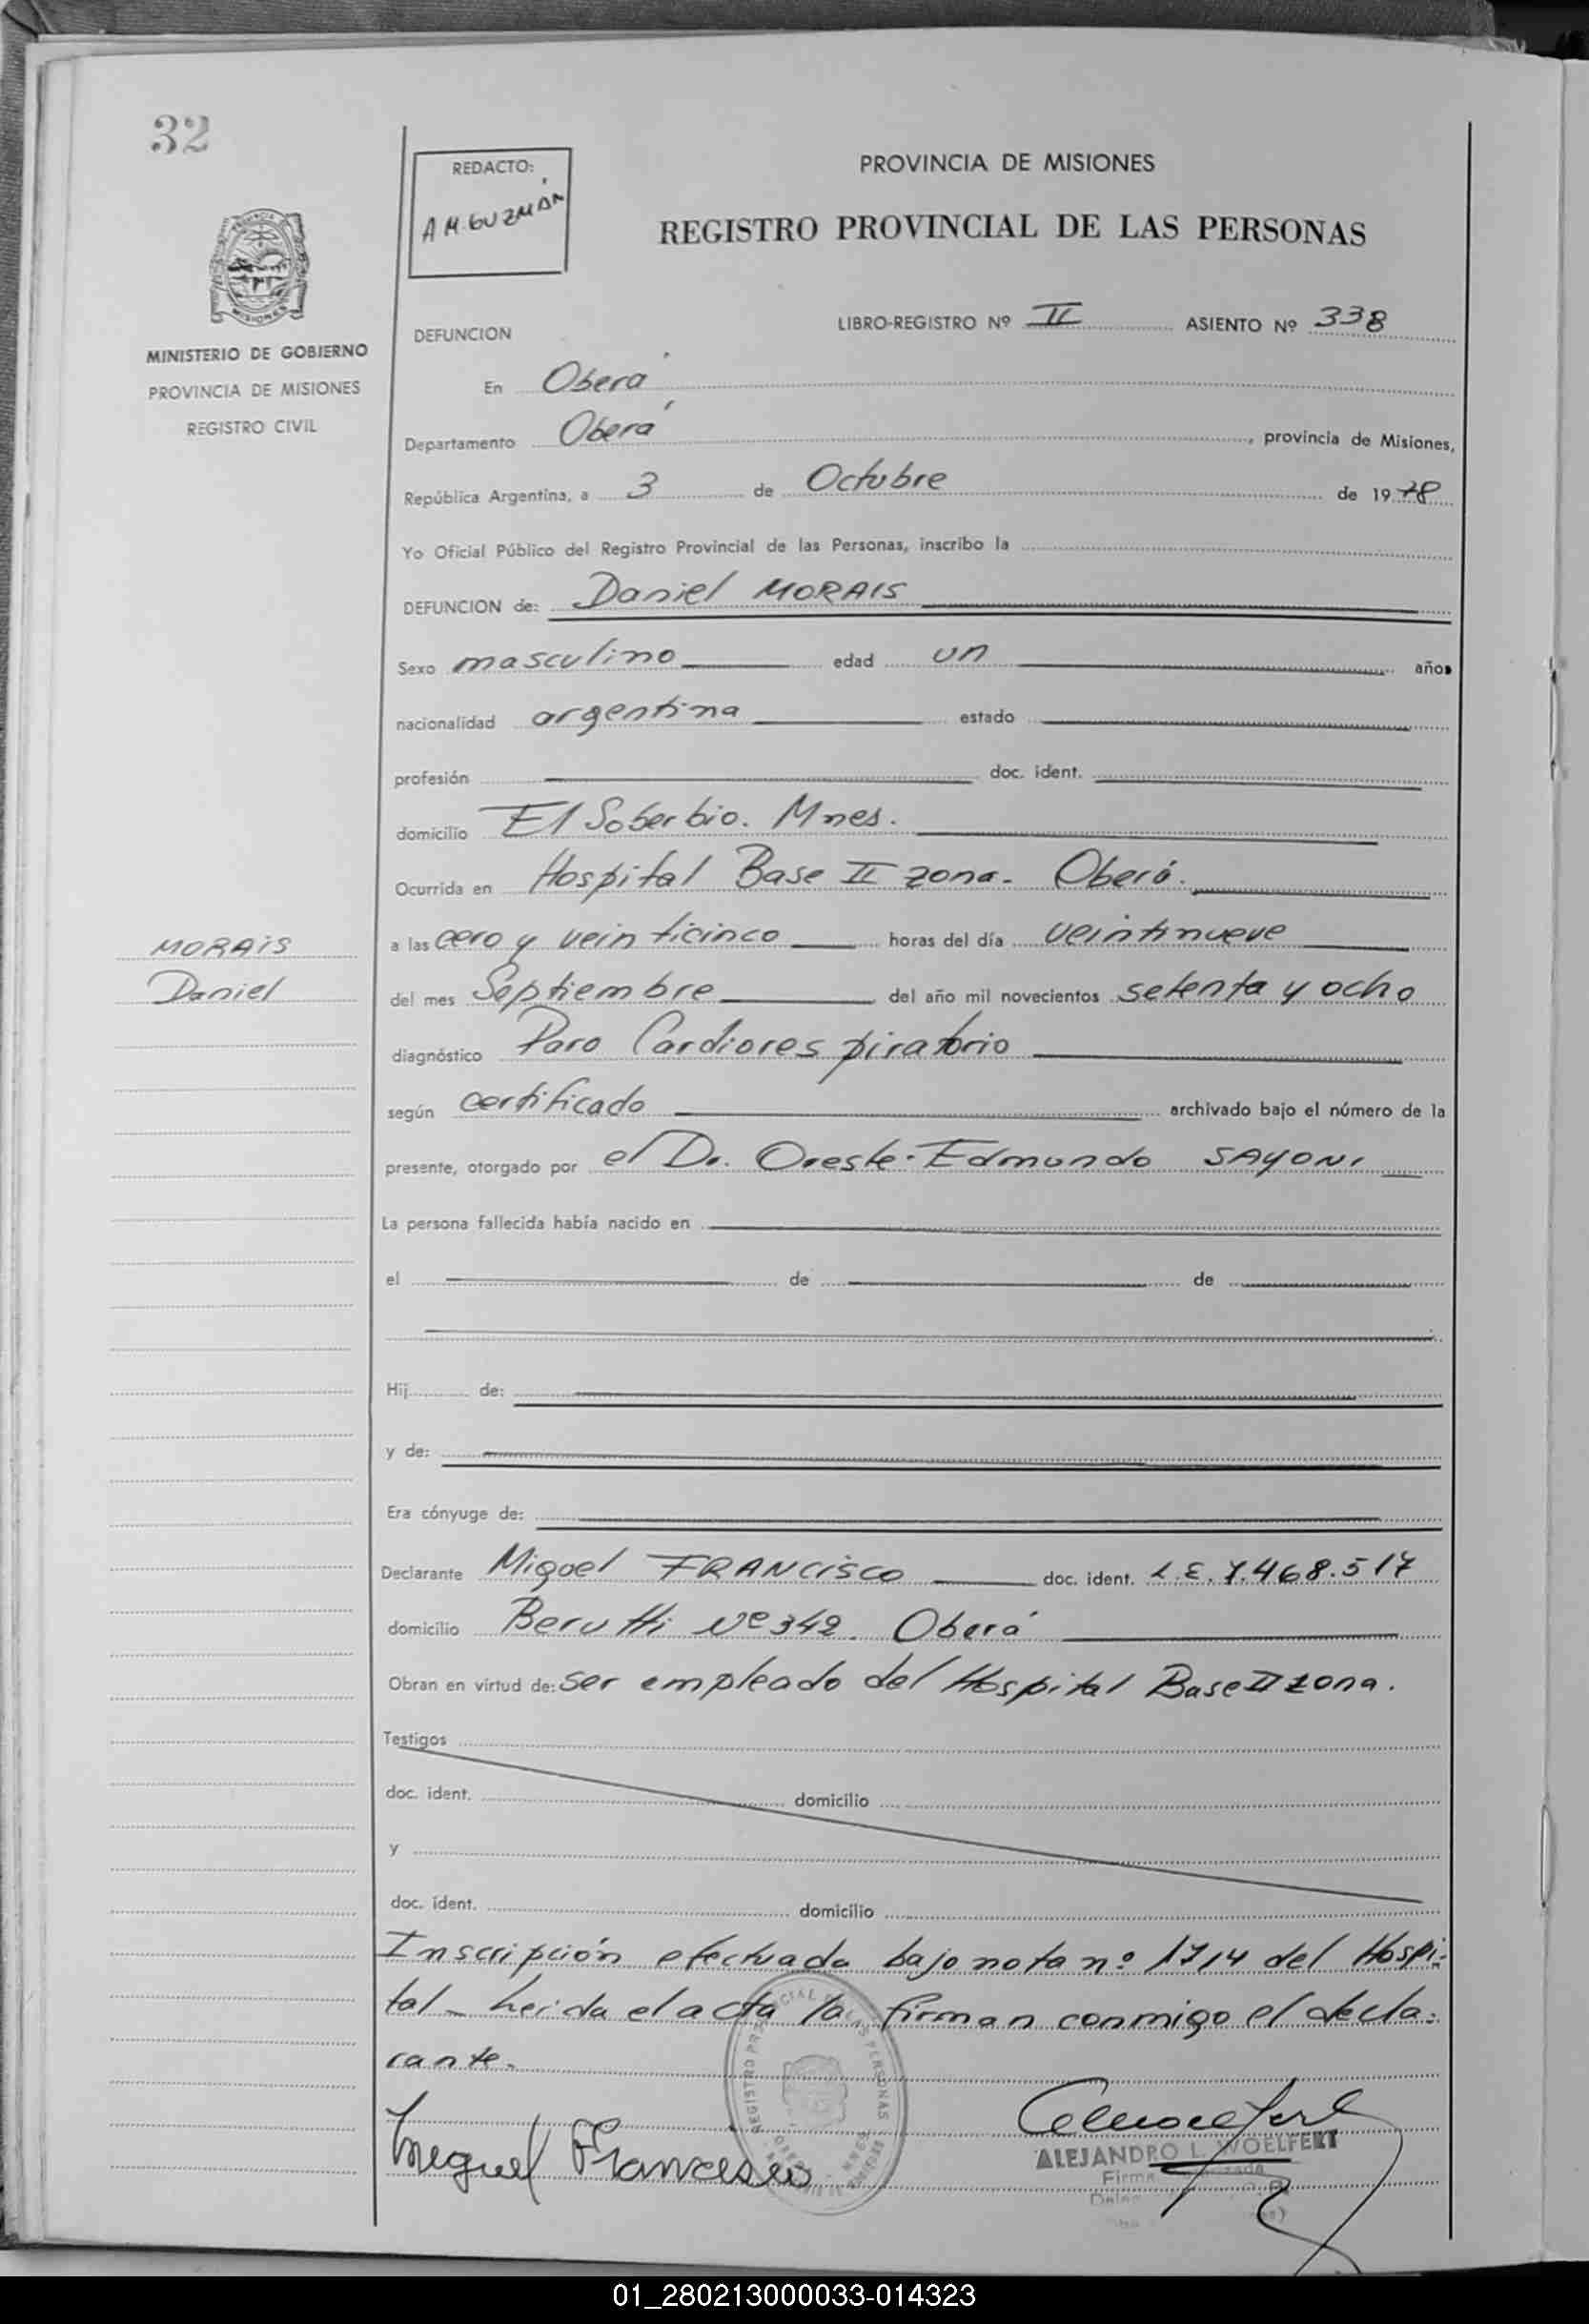 32
REDACTO:
A M. GUZMÁN
PROVINCIA DE MISIONES
REGISTRO PROVINCIAL DE LAS PERSONAS
MISIONES
MINISTERIO DE GOBIERNO
PROVINCIA DE MISIONES
REGISTRO CIVIL
DEFUNCION
LIBRO-REGISTRO Nº II ASIENTO Nº 338
En Oberá
Departamento Oberá, provincia de Misiones,
República Argentina, a 3 de Octubre de 1978
Yo Oficial Público del Registro Provincial de las Personas, inscribo la
DEFUNCION de: Daniel MORAIS
Sexo masculino edad un años
nacionalidad argentina estado
profesión doc. ident.
domicilio El Soberbio. Mnes.
Ocurrida en Hospital Base II zona. Oberá.
MORAIS
Daniel
a las cero y veinticinco horas del día veintinueve
del mes Septiembre del año mil novecientos setenta y ocho
diagnóstico Paro Cardiorespiratorio
según certificado archivado bajo el número de la
presente, otorgado por el Dr. Oreste Edmundo SAYONI
La persona fallecida había nacido en
el de de
Hij de:
y de:
Era cónyuge de:
Declarante Miguel FRANCISCO doc. ident. L.E. 7.468.517
domicilio Berutti Nº 342. Oberá
Obran en virtud de: ser empleado del Hospital Base II zona.
Testigos
doc. ident. domicilio
y
doc. ident. domicilio
Inscripción efectuada bajo nota nº 1714 del Hospi-
tal - Leida el acta la firman conmigo el decla-
rante.
Miguel Francisco
ALEJANDRO L. WOELFERT
Firma
01_280213000033-014323